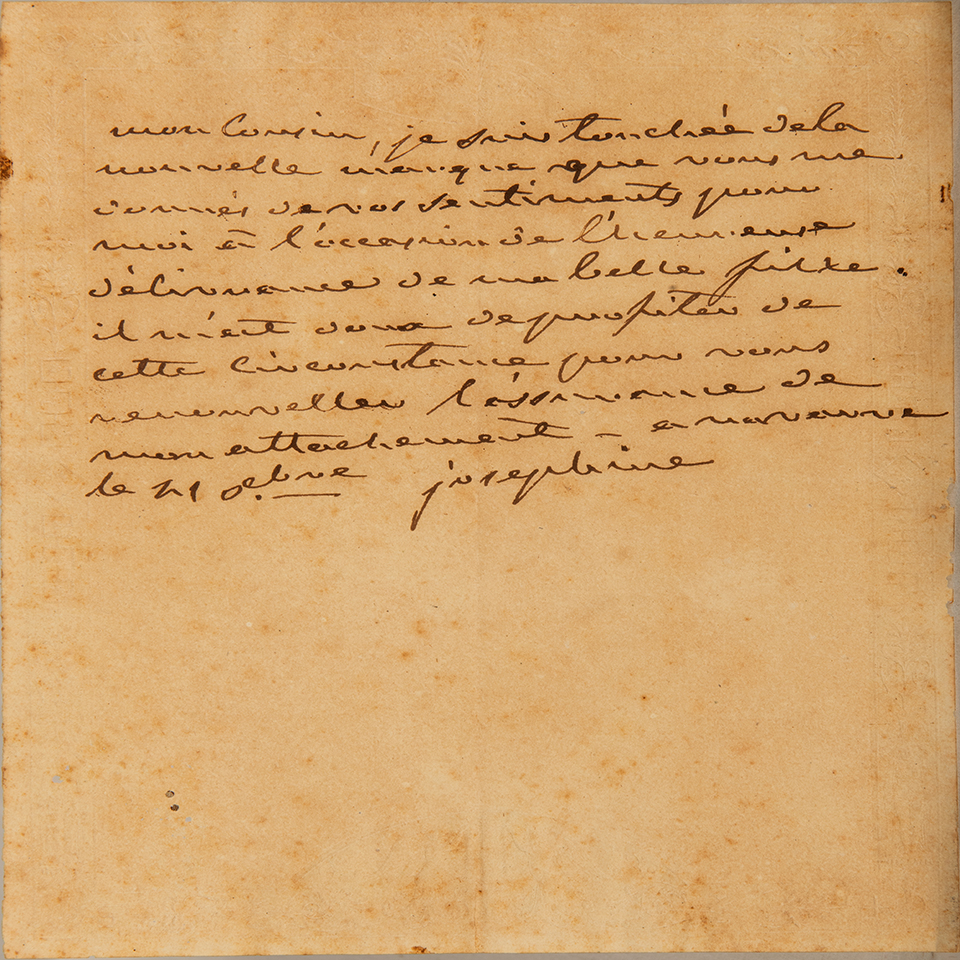 mon Cousin, je suis touchée de la
nouvelle marque que vous me
donnés de vos sentiments pour
moi à l'occasion de l'heureuse
délivrance de ma belle fille.
il m'est doux de profiter de
cette circonstance pour vous
renouveller l'assurance de
mon attachement - a navarre
le 21 8.bre josephine